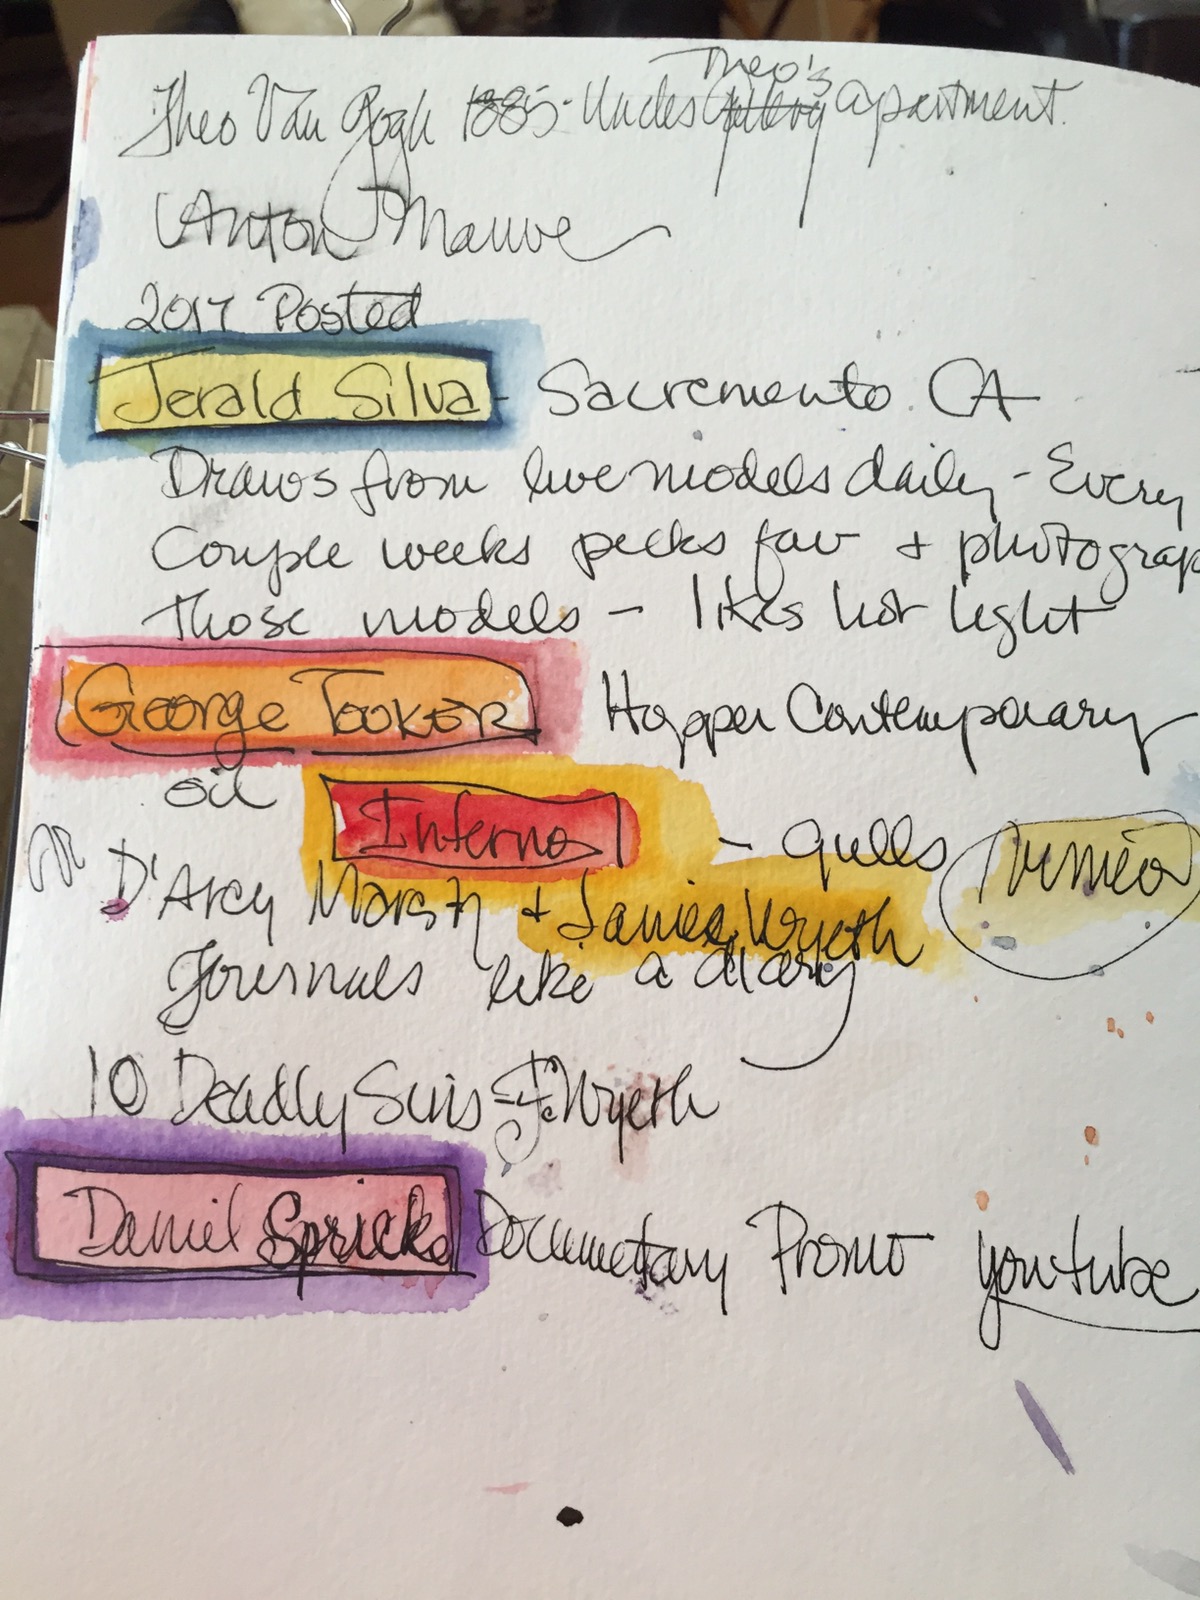 Theo Van Gogh 1885 - Uncles Theo's apartment.
Anton Mauve
2017 Posted
Jerald Silva - Sacremento CA
Draws from live models daily - Every
Couple weeks picks fav + photograp
those models - likes hot light
George Tooker Hopper Contemporary
oil
Inferno - gulls Vimeo
D'Arcy Marsh + Jamie Wyeth
Journals like a diary
10 Deadly Sins - J. Wyeth
Daniel Spricks Documentary Promo youtube